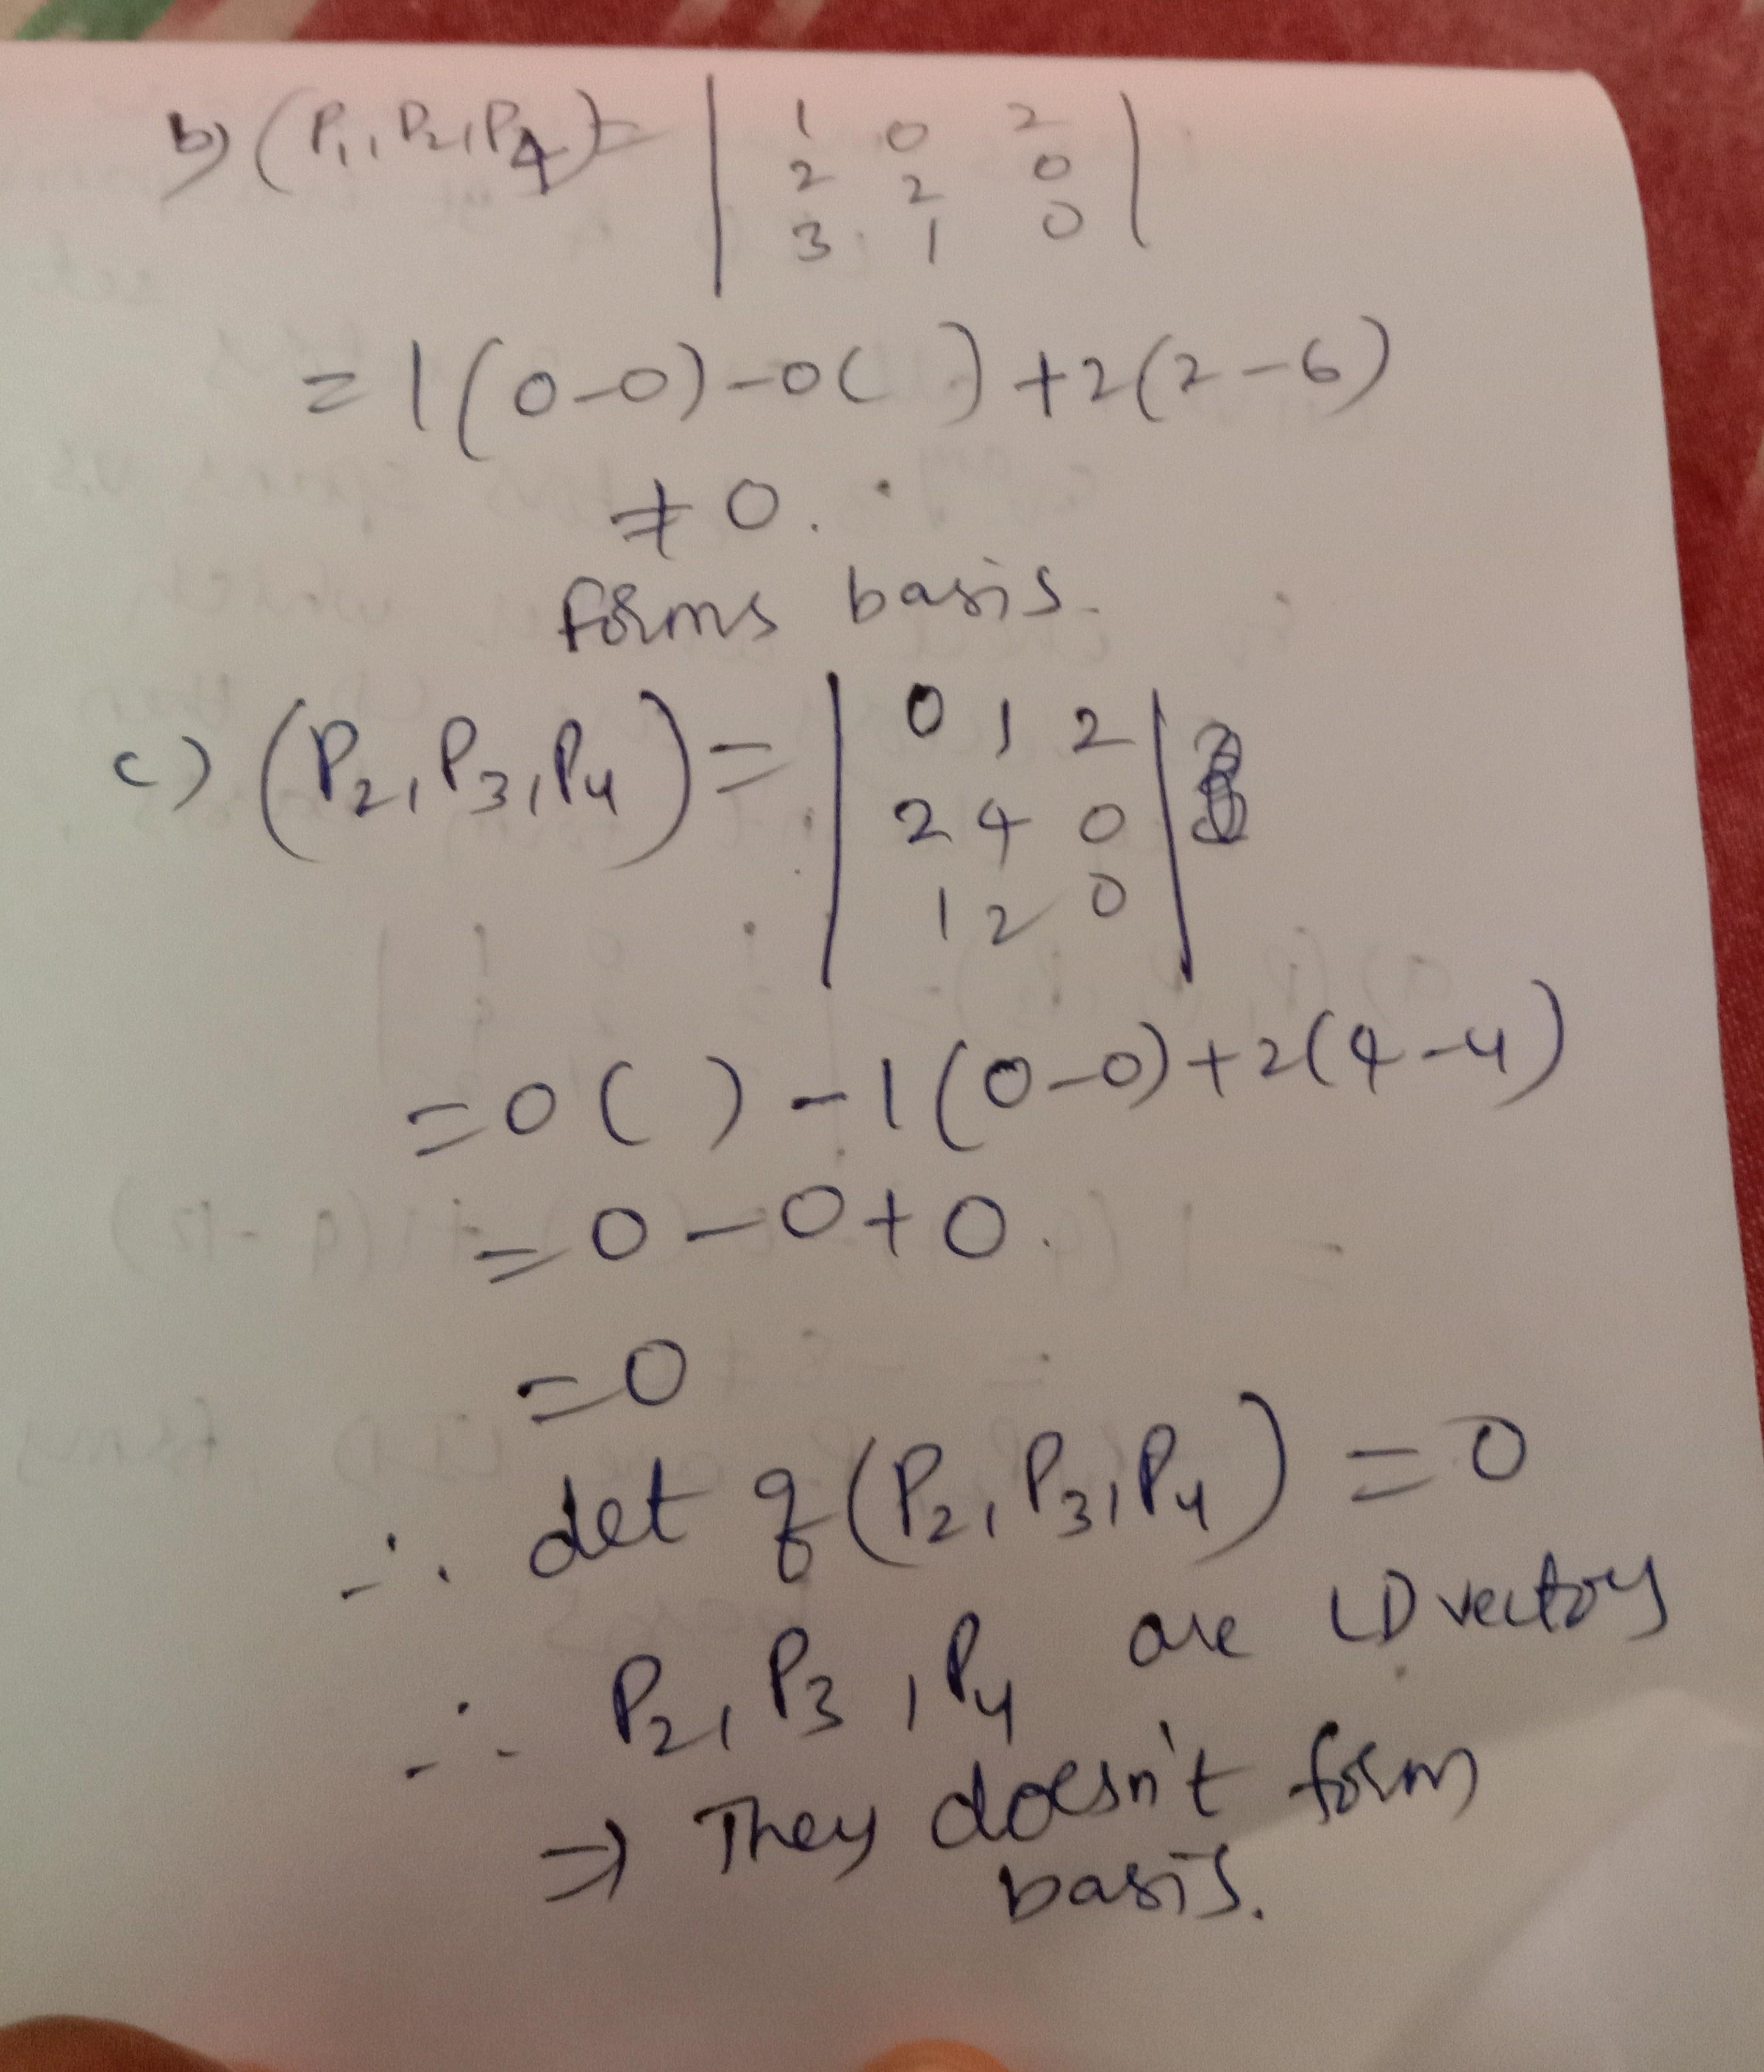 b) (P1, P2, P4) = | 1 0 2
2 2 0
3 1 0 |
= 1(0-0)-0( )+2(2-6)
≠ 0.
forms basis.
c) (P2, P3, P4) = | 0 1 2
2 4 0
1 2 0 |
= 0( ) - 1(0-0)+2(4-4)
= 0-0+0.
= 0
∴ det of (P2, P3, P4) = 0
∴ P2, P3, P4 are LD vectors
⇒ They doesn't form
basis.